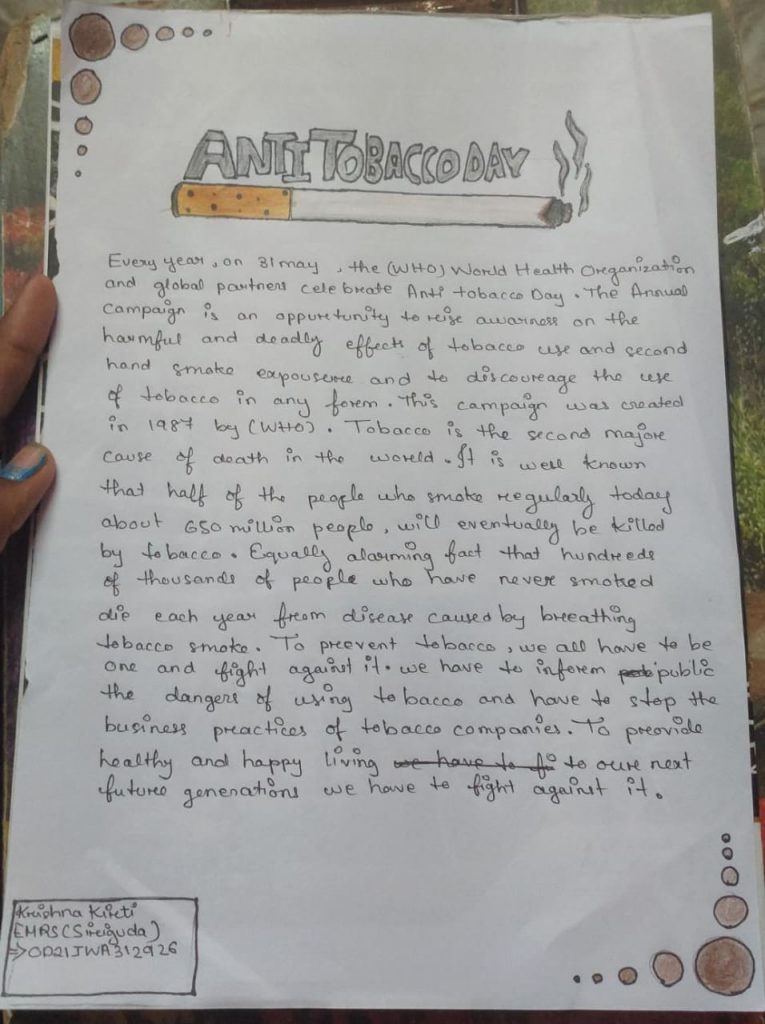 ANTI TOBACCO DAY
Every year, on 31 may, the (WHO) World Health Oreganization
and global partners celebreate Anti tobacco Day. The Annual
Campaign is an oppuretunity to reise awareness on the
harmful and deadly effects of tobacco use and second
hand smoke expousere and to discoureage the use
of tobacco in any forem. This campaign was created
in 1987 by (WHO). Tobacco is the second majore
cause of death in the woreld. It is well known
that half of the people who smoke regularly today
about 650 million people, will eventually be killed
by tobacco. Equally alareming fact that hundreeds
of thousands of people who have never smoked
die each year freom disease caused by breathing
tobacco smoke. To preevent tobacco, we all have to be
one and fight against it. we have to inforem public
the dangers of using tobacco and have to stop the
business preactices of tobacco companies. To preovide
healthy and happy living we have to fi to oure next
future generations we have to fight against it.
Krishna Kireti
EMRS (Sireiguda)
⇒OD21JWA312926